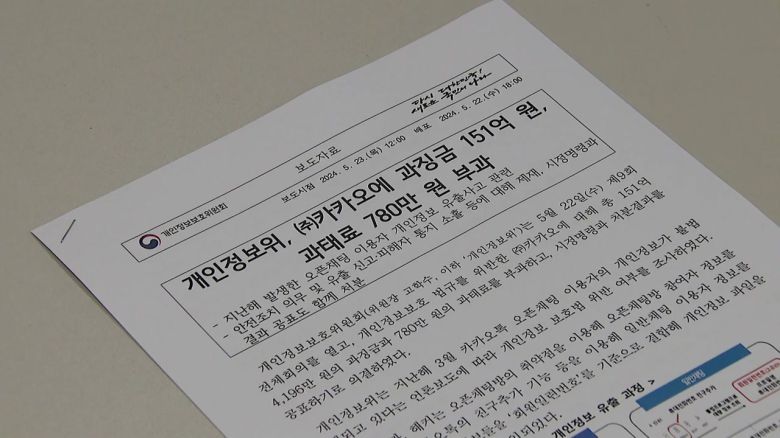 다시 대한민국!
새로운 국민의 나라
보도자료
개인정보보호위원회
보도시점 2024. 5. 23.(목) 12:00 배포 2024. 5. 22.(수) 18:00
개인정보위, ㈜카카오에 과징금 151억 원,
과태료 780만 원 부과
- 지난해 발생한 오픈채팅 이용자 개인정보 유출사고 관련
- 안전조치 의무 및 유출 신고·피해자 통지 소홀 등에 대해 제재, 시정명령과
결과 공표도 함께 처분
개인정보보호위원회(위원장 고학수, 이하 '개인정보위')는 5월 22일(수) 제9회
전체회의를 열고, 개인정보보호 법규를 위반한 ㈜카카오에 대해 총 151억
4,196만 원의 과징금과 780만 원의 과태료를 부과하고, 시정명령과 처분결과를
공표하기로 의결하였다.
개인정보위는 지난해 3월 카카오톡 오픈채팅 이용자의 개인정보가 불법
되고 있다는 언론보도에 따라 개인정보 보호법 위반 여부를 조사하였다.
해커는 오픈채팅방의 취약점을 이용해 오픈채팅방 참여자 정보를
카카오톡의 친구추가 기능 등을 이용해 일반채팅 이용자 정보를
'회원일련번호'를 기준으로 결합해 개인정보 파일을
개인정보 유출 과정 >
일반채팅